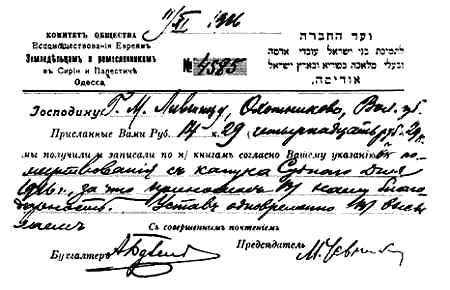 11/XI 1906
КОМИТЕТЪ ОБЩЕСТВА
Вспомоществованія Евреямъ
Земледѣльцамъ и ремесленникамъ
въ Сиріи и Палестинѣ
Одесса
ועד החברה
לתמיכת בני ישראל עובדי אדמה
ובעלי מלאכה בסוריא ובארץ ישראל
אודיסה.
№ 4585
Господину Г. М. Охотниково, Вол. губ.
Присланные Вами Руб. 14 к. 29 (четырнадцать руб. 29 к.
мы получили и записали по н/ книгамъ согласно Вашему указанію
съ Суднаго Дня
1906 г., за что приносимъ В/ нашу благо
дарность. Уставъ одновременно В/ высы
лаемъ
Съ совершеннымъ почтеніемъ
Бухгалтеръ
Предсѣдатель